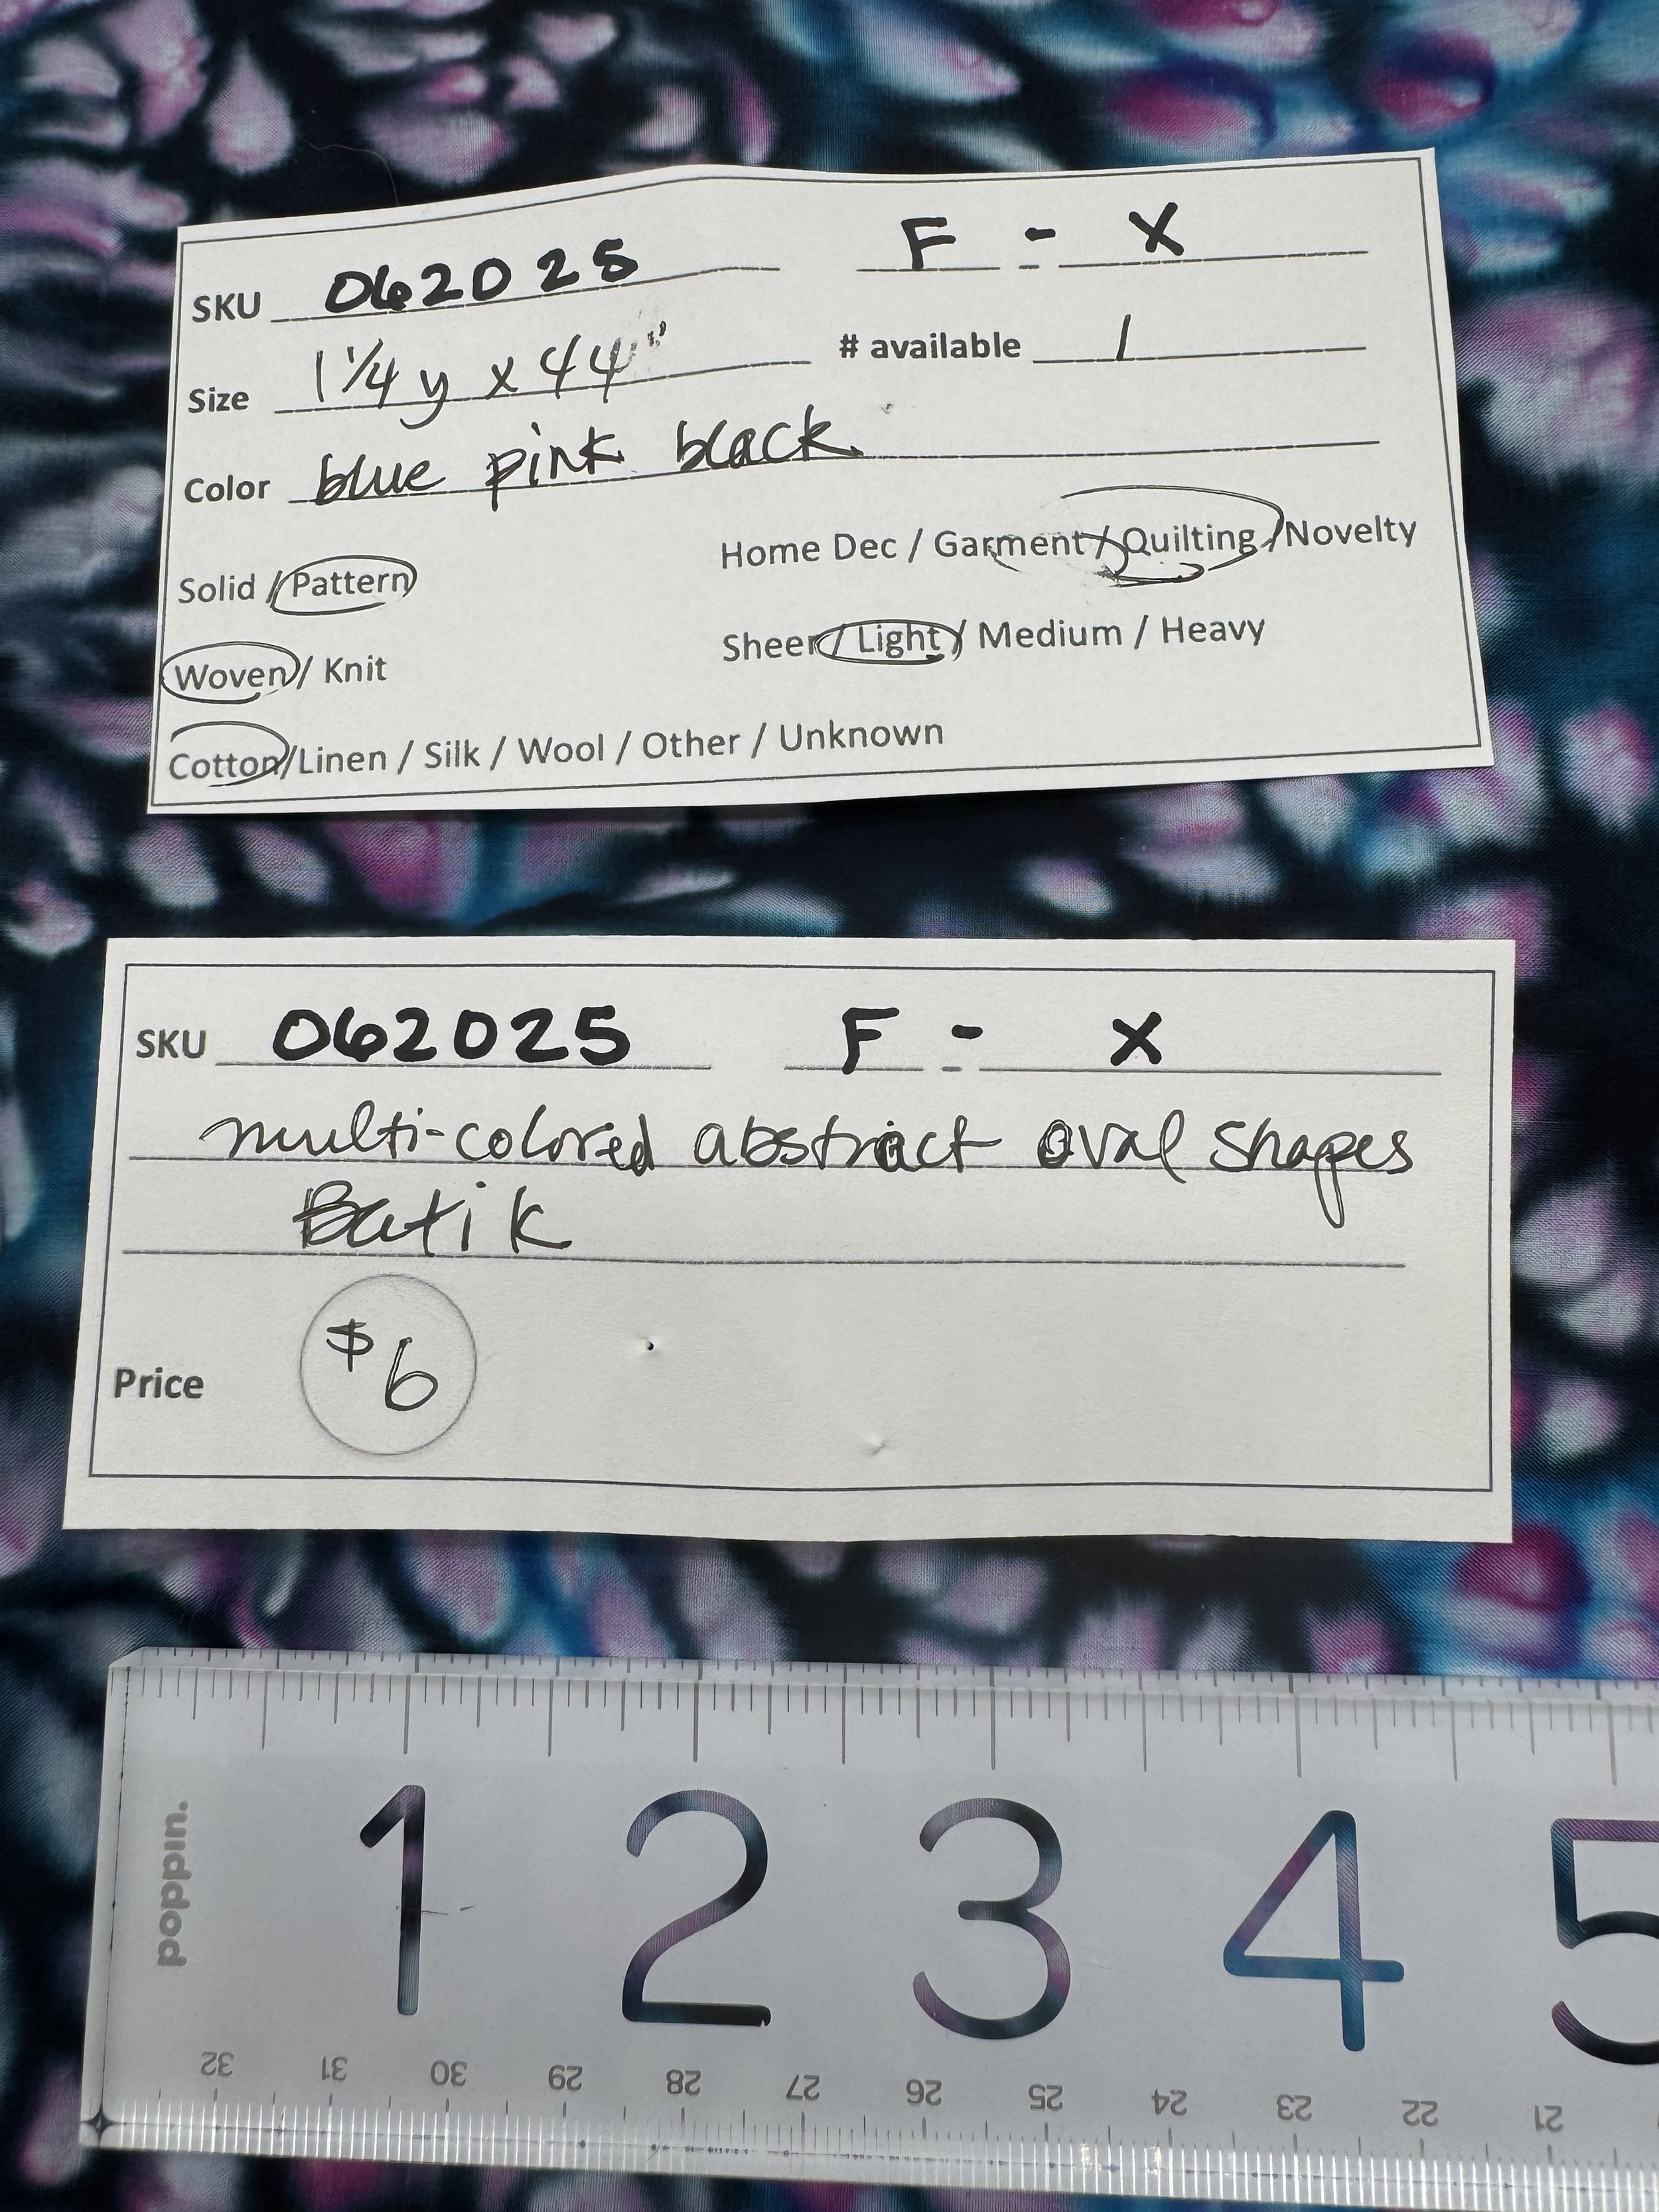 SKU 062025 F - X
Size 1 1/4 y x 44" # available 1
Color blue pink black
Home Dec / Garment / Quilting / Novelty
Solid / Pattern
Sheer / Light / Medium / Heavy
Woven / Knit
Cotton / Linen / Silk / Wool / Other / Unknown
SKU 062025 F - X
multi-colored abstract oval shapes
Batik
Price $6
poppin.
1 2 3 4 5
32 31 30 29 28 27 26 25 24 23 22 21